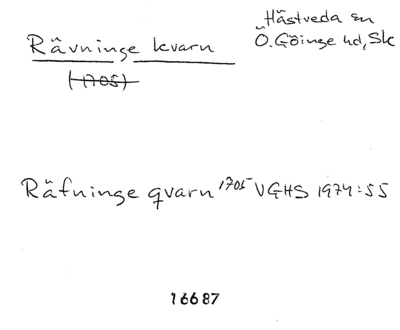 Rävninge kvarn
(1705)
Hästveda sn
Ö. Göinge hd, Sk
Räfninge qvarn 1705 VGHS 1974:55
16687